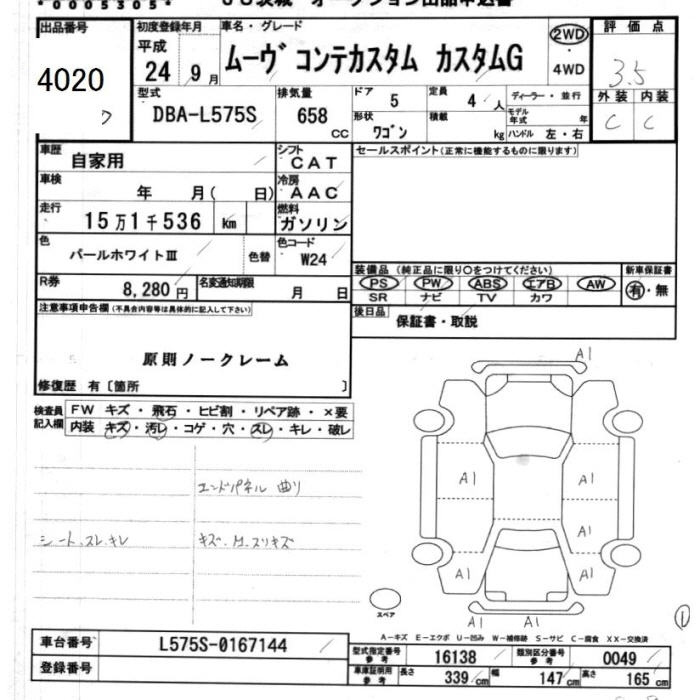 *0005305*
JU茨城 オークション出品申込書
出品番号
4020
初度登録年月
平成
24年9月
車名・グレード
ムーヴ コンテカスタム カスタムG
2WD
4WD
評価点
3.5
外装 内装
C C
型式
DBA-L575S
排気量
658
cc
ドア
5
定員
4人
ディーラー・並行
形状
ワゴン
積載
kg
モデル年式 年
ハンドル 左・右
車歴
自家用
シフト
CAT
車検
年 月( 日)
冷房
AAC
走行
15万1千536 km
燃料
ガソリン
色
パールホワイトⅢ
色替
色コード
W24
R券
8,280円
名変通知期限
月 日
セールスポイント(正常に機能するものに限ります)
装備品(純正品に限り○をつけてください)
PS PW ABS エアB AW
SR ナビ TV カワ
新車保証書
有・無
後日品
保証書・取説
注意事項申告欄(不具合内容等は具体的に記入して下さい)
原則ノークレーム
修復歴 有〔箇所 〕
検査員記入欄
FW キズ・飛石・ヒビ割・リペア跡・×要
内装 キズ・汚レ・コゲ・穴・スレ・キレ・破レ
エンドパネル 曲り
シート、スレ、キレ
キズ、凹、スリキズ
A1
A1
A1
A1
A1
A1
A1 A1
スペア
A-キズ E-エクボ U-凹み W-補修跡 S-サビ C-腐食 XX-交換済
車台番号
L575S-0167144
登録番号
型式指定番号 参考
16138
類別区分番号 参考
0049
車庫証明用 参考
長さ 339cm
幅 147cm
高さ 165cm